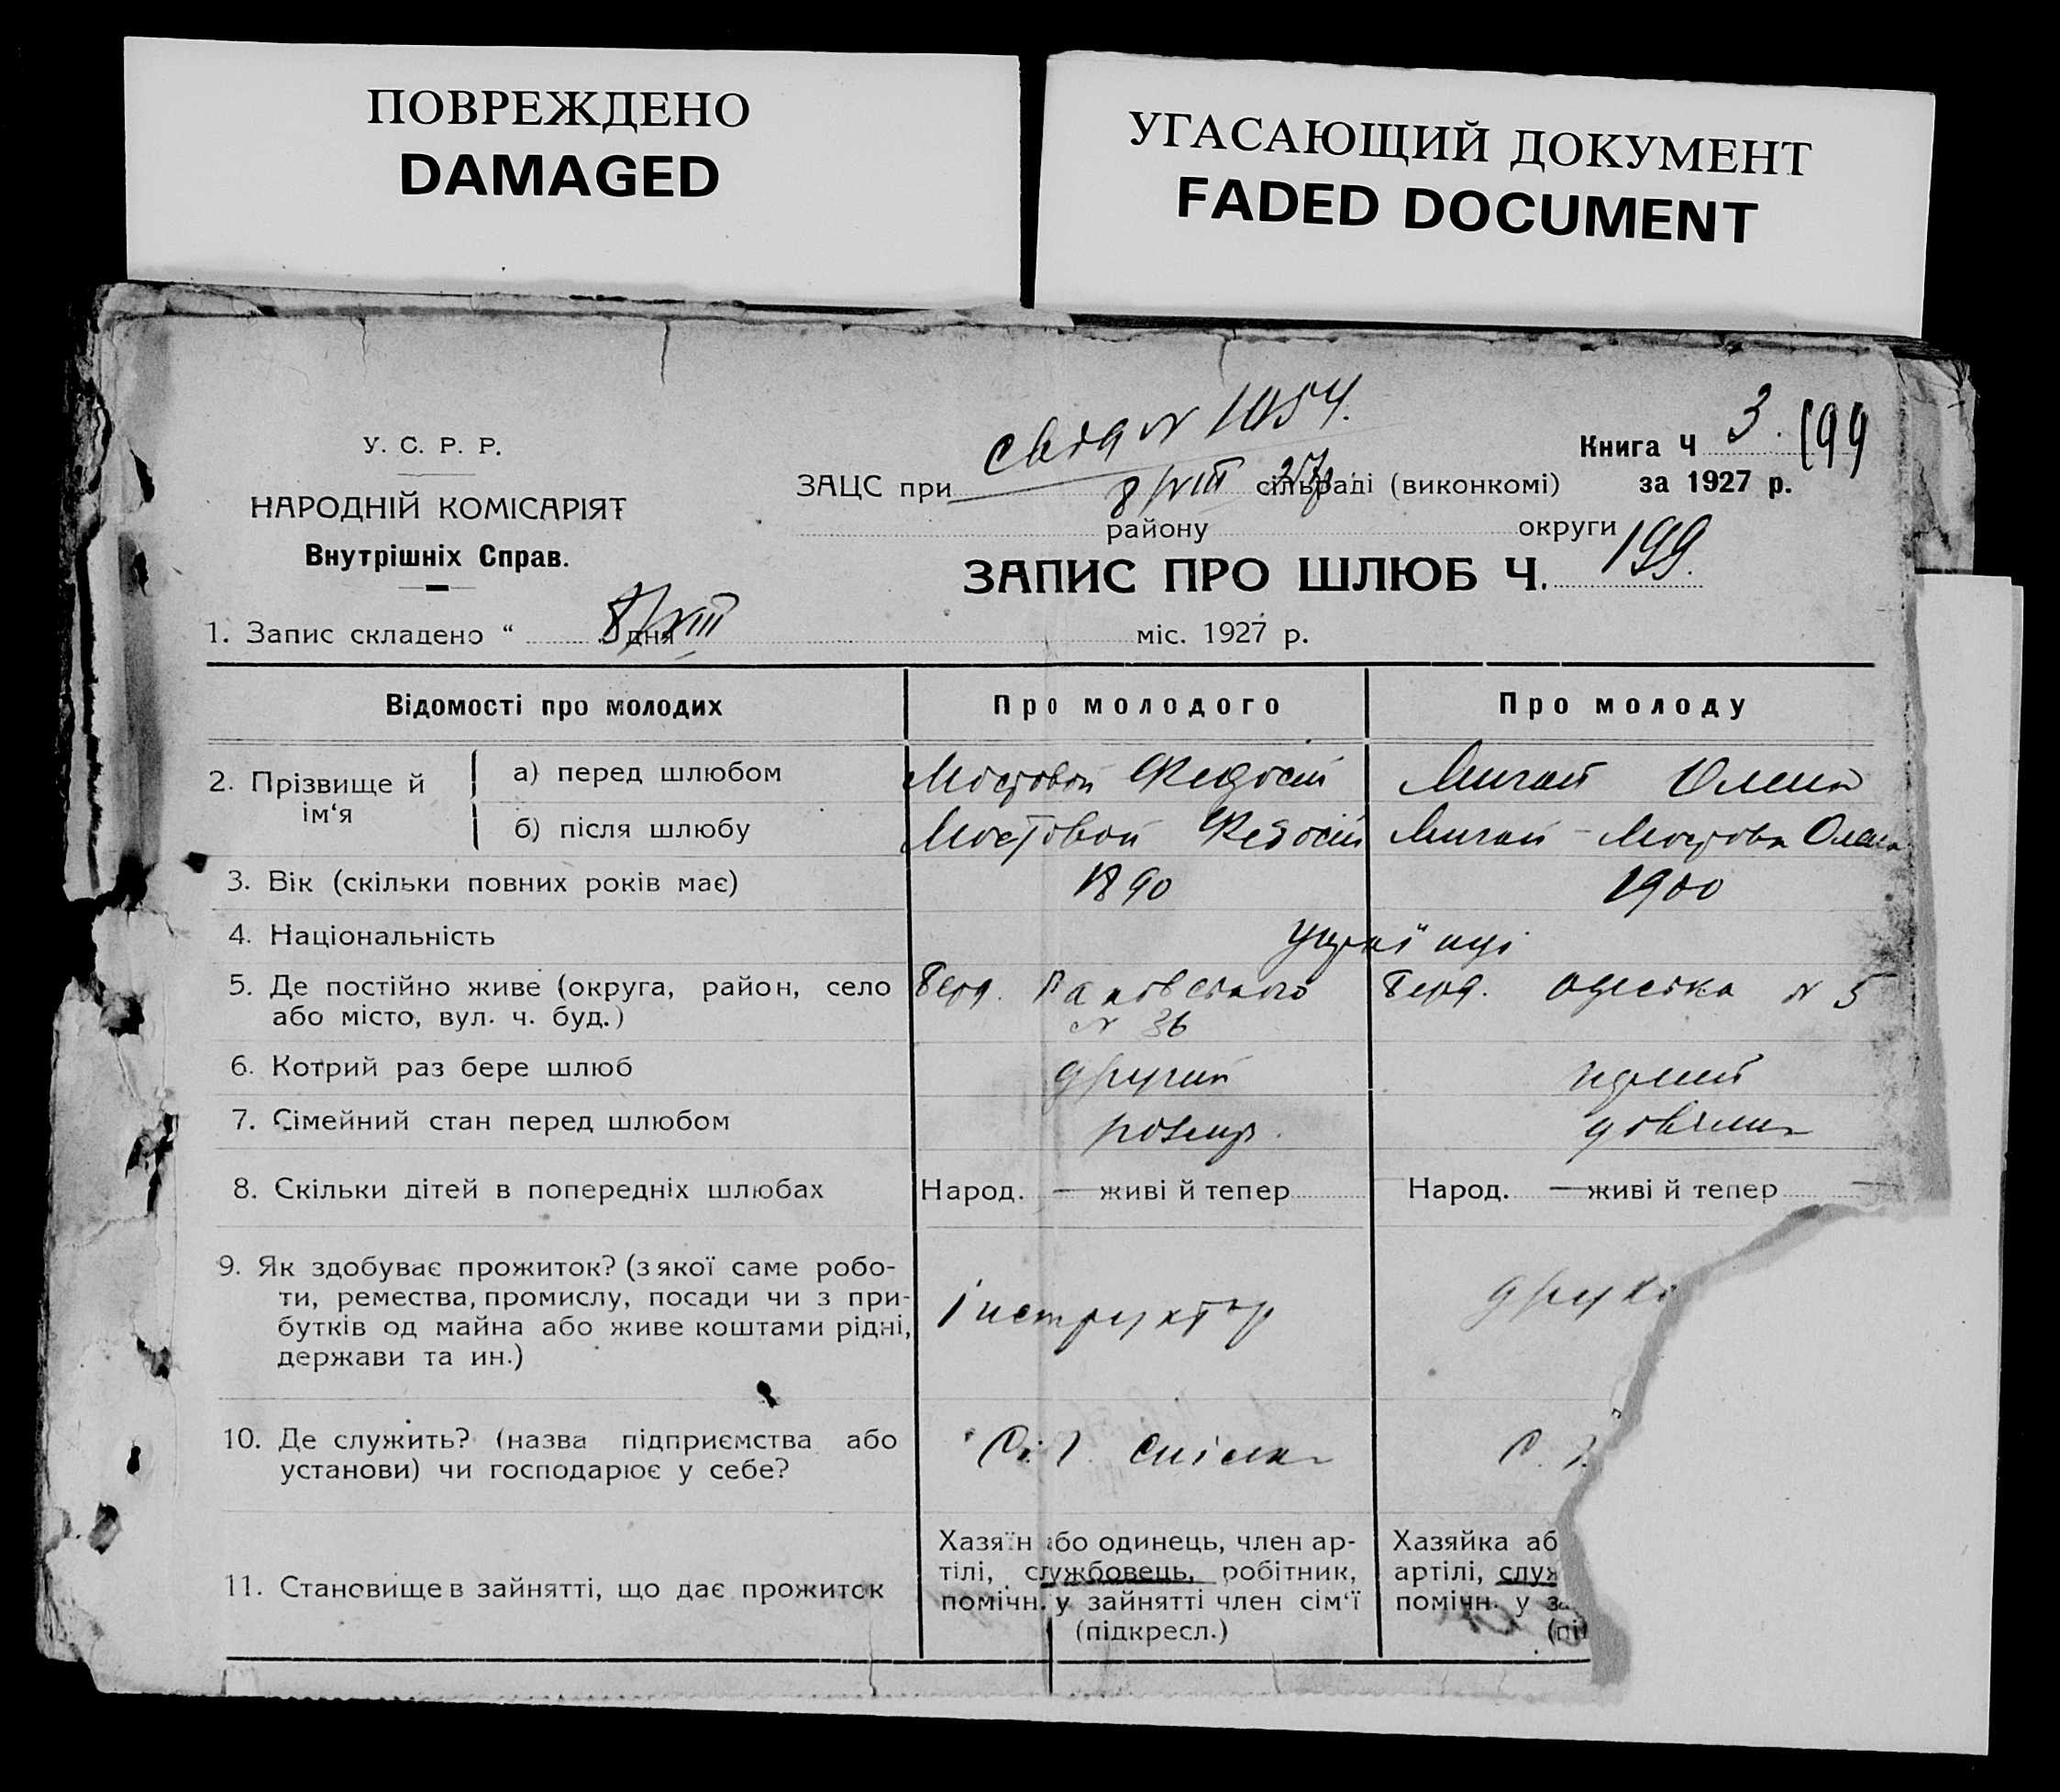 ПОВРЕЖДЕНО
DAMAGED
УГАСАЮЩИЙ ДОКУМЕНТ
FADED DOCUMENT
У. С. Р. Р.
НАРОДНІЙ КОМІСАРІЯТ
Внутрішніх Справ.
N 1054.
Книга Ч 3. 199
за 1927 р.
ЗАЦС при 8/VIII 27р. сільраді (виконкомі)
району округи
ЗАПИС ПРО ШЛЮБ Ч. 199.
1. Запис складено “ 8/VIII дня міс. 1927 р.
Відомості про молодих Про молодого Про молоду
2. Прізвище й ім‘я
а) перед шлюбом Мостовой Федосій Мигай Олена
б) після шлюбу Мостовой Федосій Мигай - Мостова Олена
3. Вік (скільки повних років має) 1890 1900
4. Національність українці
5. Де постійно живе (округа, район, село Берд. Раковського Берд. Одеська N 5
або місто, вул. ч. буд.) N 36
6. Котрий раз бере шлюб другий перший
7. Сімейний стан перед шлюбом розвир. дівчина
8. Скільки дітей в попередніх шлюбах Народ. — живі й тепер Народ. — живі й тепер —
9. Як здобуває прожиток? (з якої саме робо-
ти, ремества, промислу, посади чи з при- інструктор друкі
бутків од майна або живе коштами рідні,
держави та ин.)
10. Де служить? (назва підприємства або С. Г. Спілка С. Г.
установи) чи господарює у себе?
11. Становище в зайнятті, що дає прожиток
Хазяїн або одинець, член ар-
тілі, службовець, робітник,
помічн. у зайнятті член сім‘ї
(підкресл.)
Хазяйка аб
артілі, служ
помічн. у за
(пі